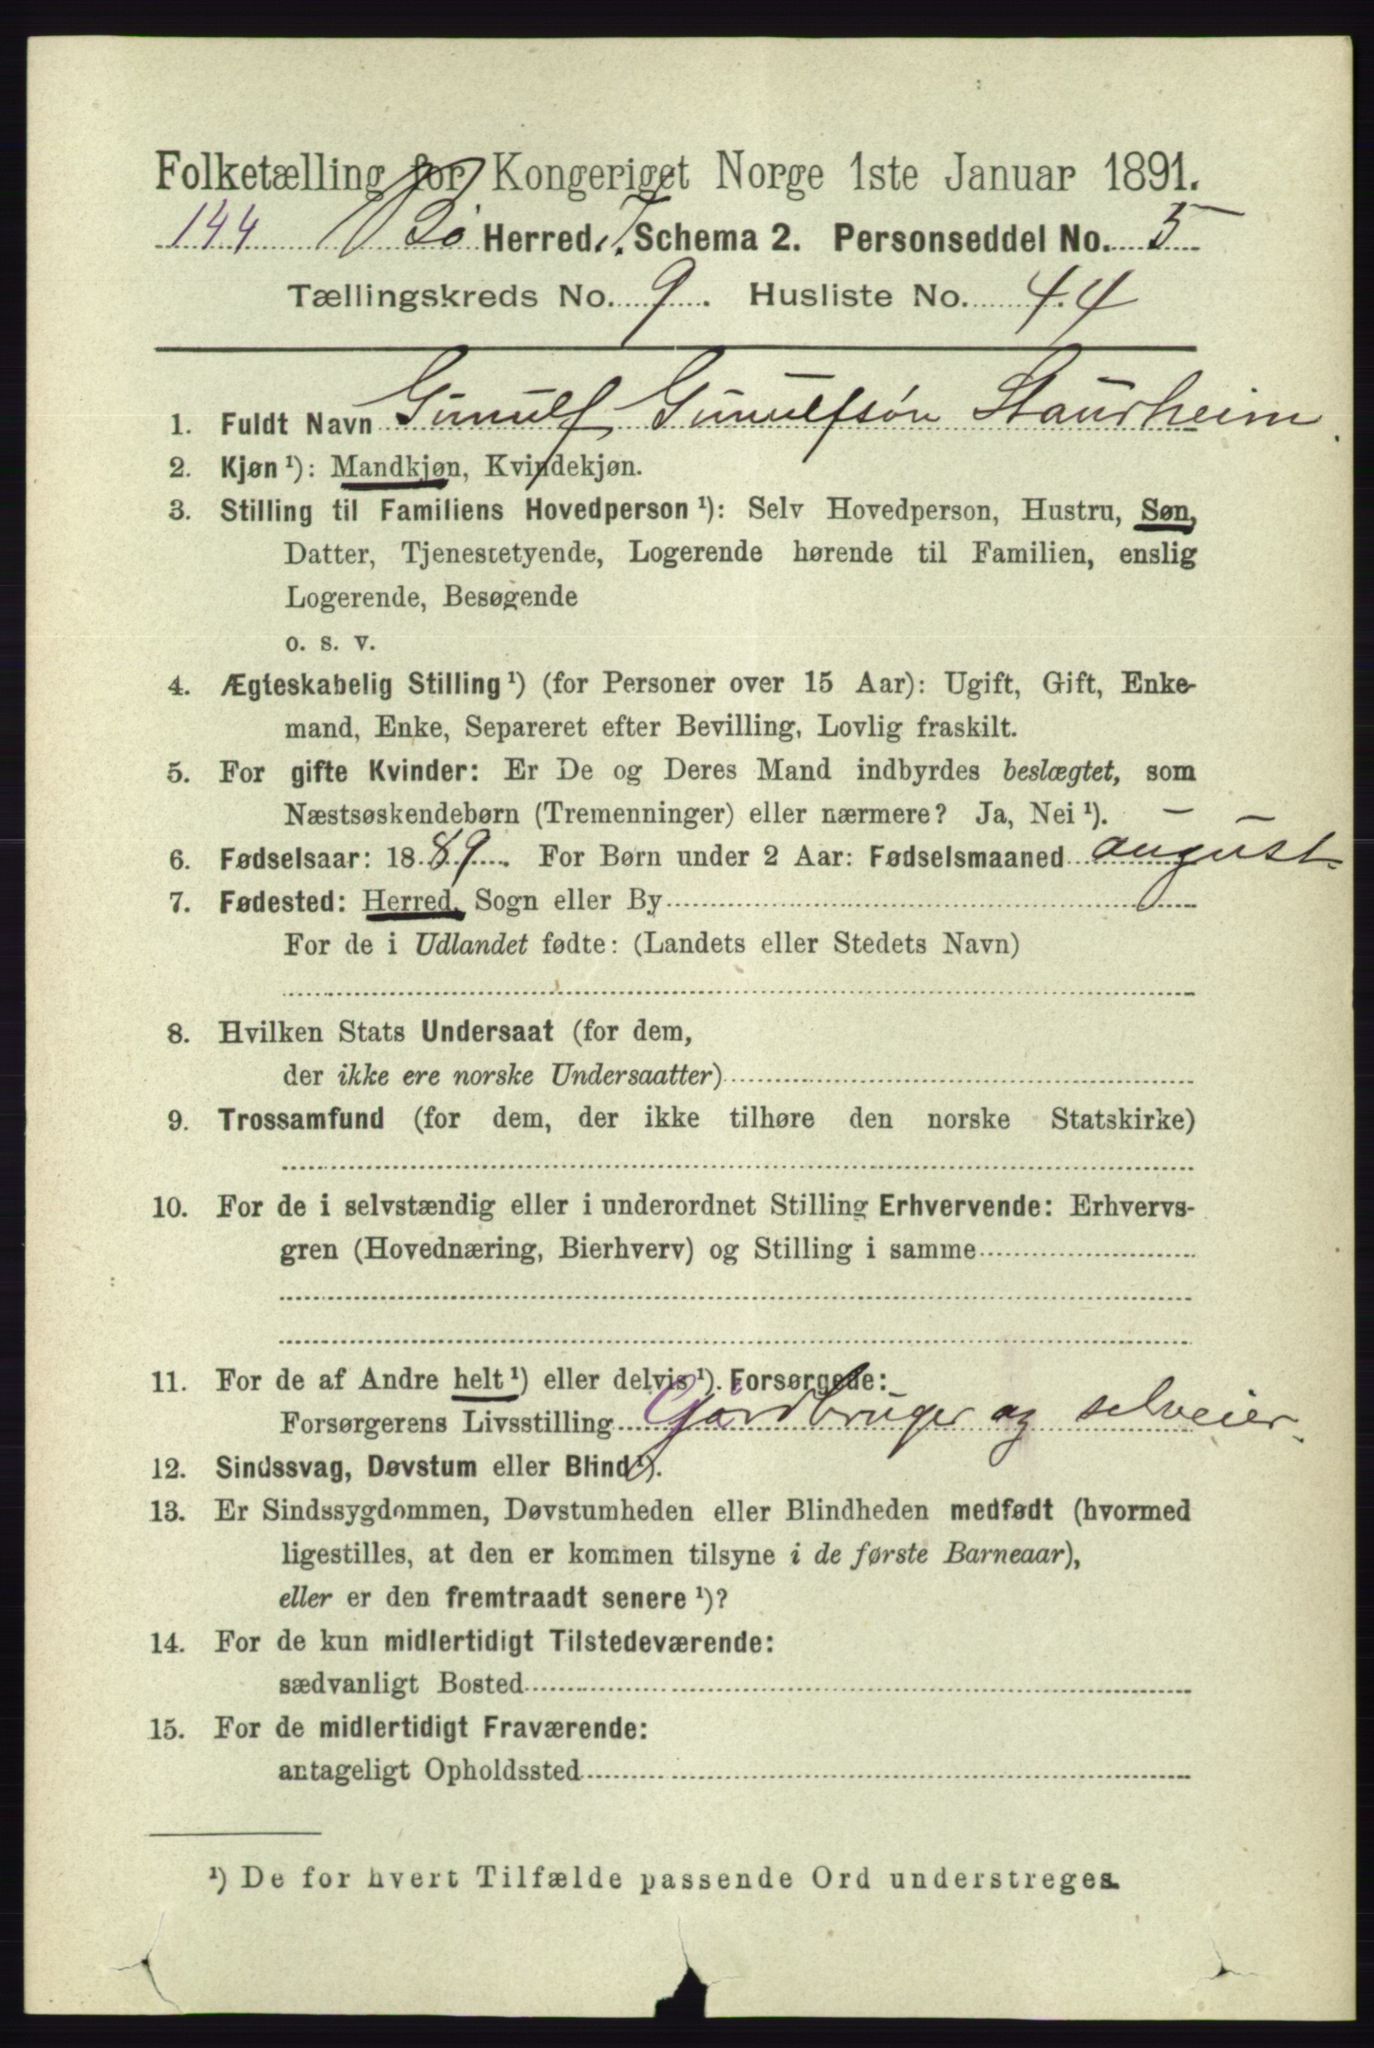 Folketælling for Kongeriget Norge 1ste Januar 1891.
144 Bø Herred. Schema 2. Personseddel No. 5
Tællingskreds No. 9. Husliste No. 44
1. Fuldt Navn Gunulf Gunulfsøn Staurheim
2. Kjøn ¹): Mandkjøn, Kvindekjøn.
3. Stilling til Familiens Hovedperson ¹): Selv Hovedperson, Hustru, Søn,
Datter, Tjenestetyende, Logerende hørende til Familien, enslig
Logerende, Besøgende
o. s. v.
4. Ægteskabelig Stilling ¹) (for Personer over 15 Aar): Ugift, Gift, Enke-
mand, Enke, Separeret efter Bevilling, Lovlig fraskilt.
5. For gifte Kvinder: Er De og Deres Mand indbyrdes beslægtet, som
Næstsøskendebørn (Tremenninger) eller nærmere? Ja, Nei ¹). –
6. Fødselsaar: 1889. For Børn under 2 Aar: Fødselsmaaned august
7. Fødested: Herred, Sogn eller By
For de i Udlandet fødte: (Landets eller Stedets Navn)
8. Hvilken Stats Undersaat (for dem,
der ikke ere norske Undersaatter)
9. Trossamfund (for dem, der ikke tilhøre den norske Statskirke)
10. For de i selvstændig eller i underordnet Stilling Erhvervende: Erhvervs-
gren (Hovednæring, Bierhverv) og Stilling i samme
11. For de af Andre helt ¹) eller delvis ¹) Forsørgede:
Forsørgerens Livsstilling Gårdbruger og selveier
12. Sindssvag, Døvstum eller Blind ¹).
13. Er Sindssygdommen, Døvstumheden eller Blindheden medfødt (hvormed
ligestilles, at den er kommen tilsyne i de første Barneaar),
eller er den fremtraadt senere ¹)?
14. For de kun midlertidigt Tilstedeværende:
sædvanligt Bosted
15. For de midlertidigt Fraværende:
antageligt Opholdssted
¹) De for hvert Tilfælde passende Ord understreges.